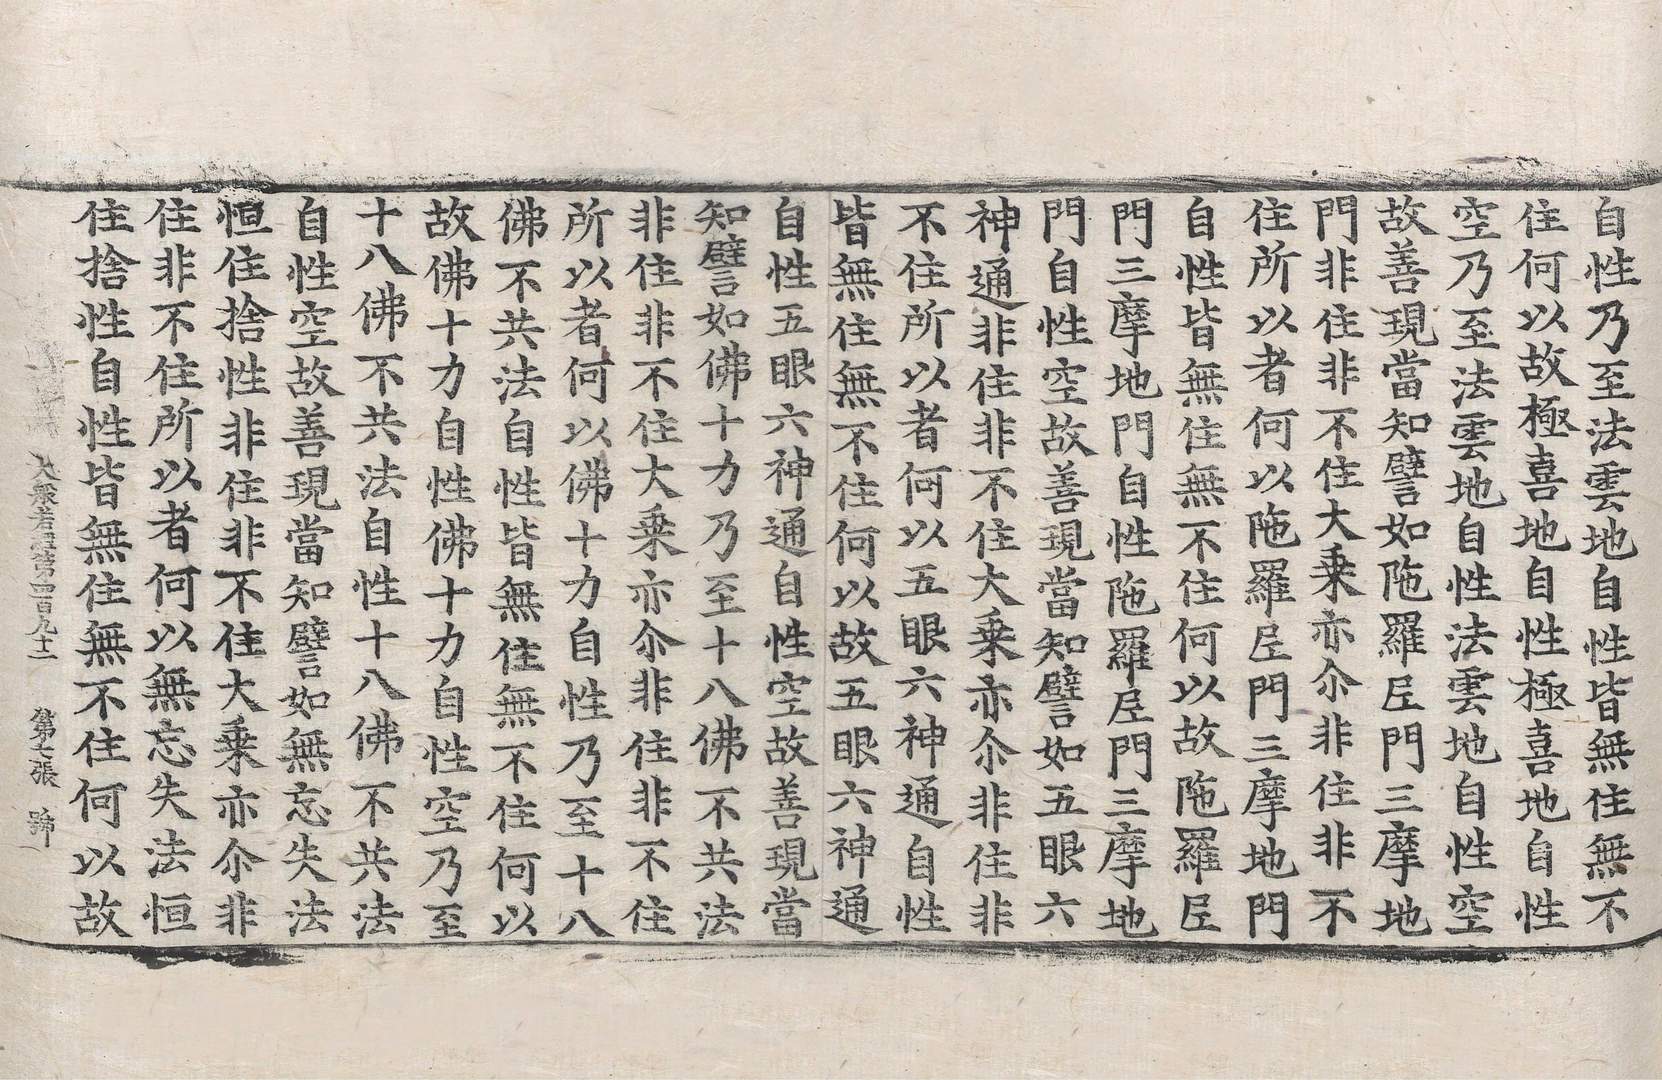 自性乃至法雲地自性皆無住無不
住何以故極喜地自性極喜地自性
空乃至法雲地自性法雲地自性空
故善現當知譬如陁羅尼門三摩地
門非住非不住大乗亦尒非住非不
住所以者何以陁羅尼門三摩地門
自性皆無住無不住何以故陁羅尼
門三摩地門自性陁羅尼門三摩地
門自性空故善現當知譬如五眼六
神通非住非不住大乗亦尒非住非
不住所以者何以五眼六神通自性
皆無住無不住何以故五眼六神通
自性五眼六神通自性空故善現當
知譬如佛十力乃至十八佛不共法
非住非不住大乗亦尒非住非不住
所以者何以佛十力自性乃至十八
佛不共法自性皆無住無不住何以
故佛十力自性佛十力自性空乃至
十八佛不共法自性十八佛不共法
自性空故善現當知譬如無忘失法
恒住捨性非住非不住大乗亦尒非
住非不住所以者何以無忘失法恒
住捨性自性皆無住無不住何以故
大般若經第四百九十一 第七張